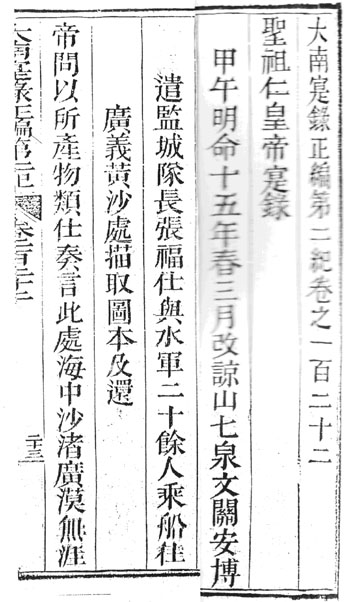 大南寔錄正編第二紀卷之一百二十二
聖祖仁皇帝寔錄
甲午明命十五年春三月改諒山七泉文關安博
遣監城隊長張福仕與水軍二十餘人乘船往
廣義黃沙處描取圖本及還
帝問以所產物類仕奏言此處海中沙渚廣漠無涯
大南寔錄正編第二紀 卷一百二十二 二十三